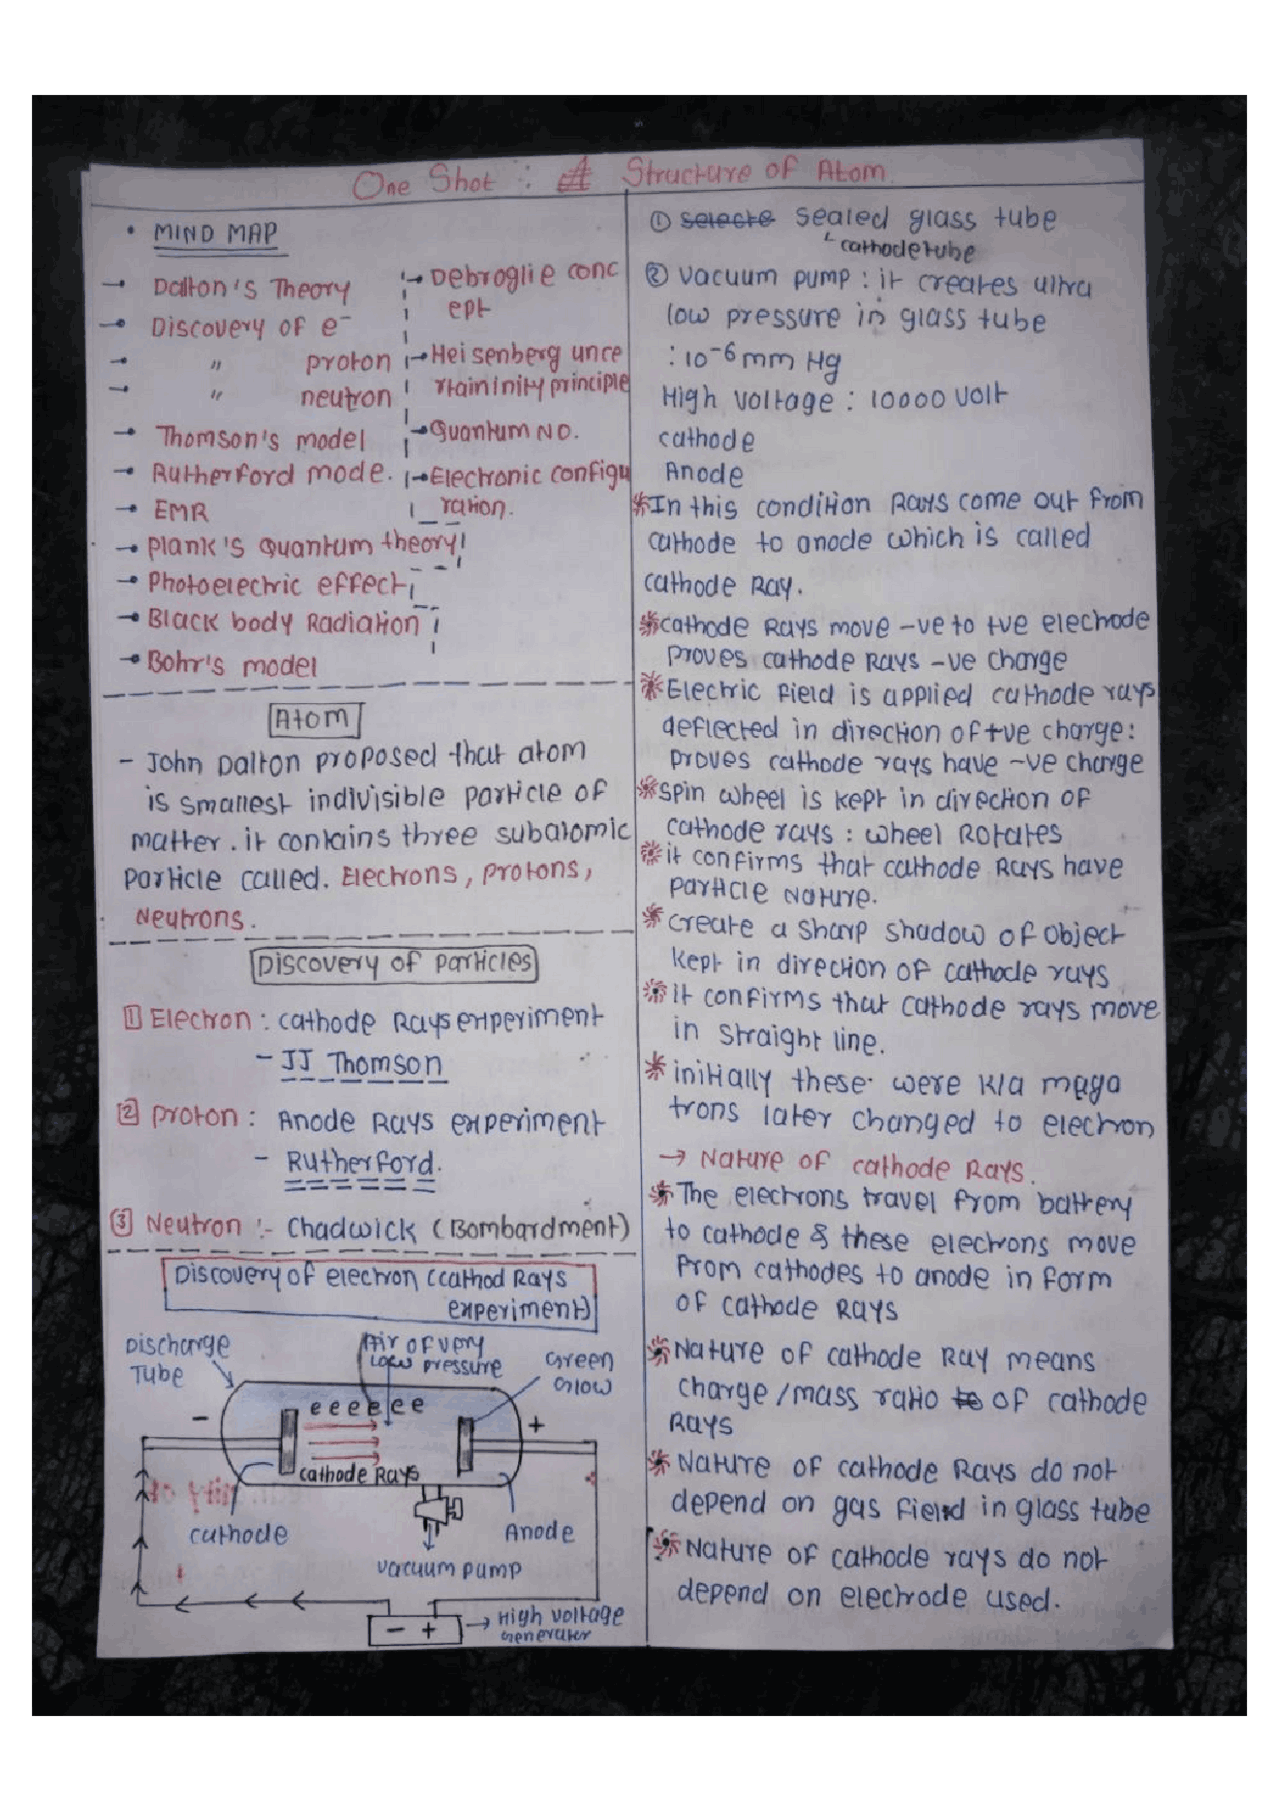 One Shot : A Structure of Atom.
• MIND MAP
→ Dalton's Theory
→ Discovery of e⁻
→ " proton
→ " neutron
→ Thomson's model
→ Rutherford mode.
→ EMR
→ Plank's Quantum theory
→ Photoelectric effect
→ Black body Radiation
→ Bohr's model
→ Debroglie conc
ept
→ Heisenberg unce
rtaininity principle
→ Quantum NO.
→ Electronic configu
ration.
Atom
- John Dalton proposed that atom
is smallest indivisible particle of
matter. it contains three subatomic
particle called. Electrons, protons,
Neutrons.
Discovery of particles
1 Electron : cathode Rays experiment
- JJ Thomson
2 proton : Anode Rays experiment
- Rutherford.
3 Neutron :- Chadwick (Bombardment)
Discovery of electron (cathod Rays
experiment)
Discharge
Tube
Air of very
low pressure
Green
Glow
- e e e e e e e +
cathode Rays
cathode
Anode
vacuum pump
- + → High voltage
Generater
① selecte sealed glass tube
cathode tube
② vacuum pump : it creates ultra
low pressure in glass tube
: 10⁻⁶ mm Hg
High voltage : 10000 volt
cathode
Anode
* In this condition Rays come out from
cathode to anode which is called
cathode Ray.
* cathode Rays move -ve to +ve electrode
proves cathode Rays -ve charge
* Electric field is applied cathode rays
deflected in direction of +ve charge:
proves cathode rays have -ve charge
* spin wheel is kept in direction of
cathode rays : wheel Rotates
* it confirms that cathode Rays have
particle Nature.
* create a sharp shadow of object
kept in direction of cathode rays
* It confirms that cathode rays move
in straight line.
* initially these were k/a mega
trons later changed to electron
→ Nature of cathode Rays.
* The electrons travel from battery
to cathode & these electrons move
from cathodes to anode in form
of cathode Rays
* Nature of cathode Ray means
charge/mass ratio to of cathode
Rays
* Nature of cathode Rays do not
depend on gas field in glass tube
* Nature of cathode rays do not
depend on electrode used.